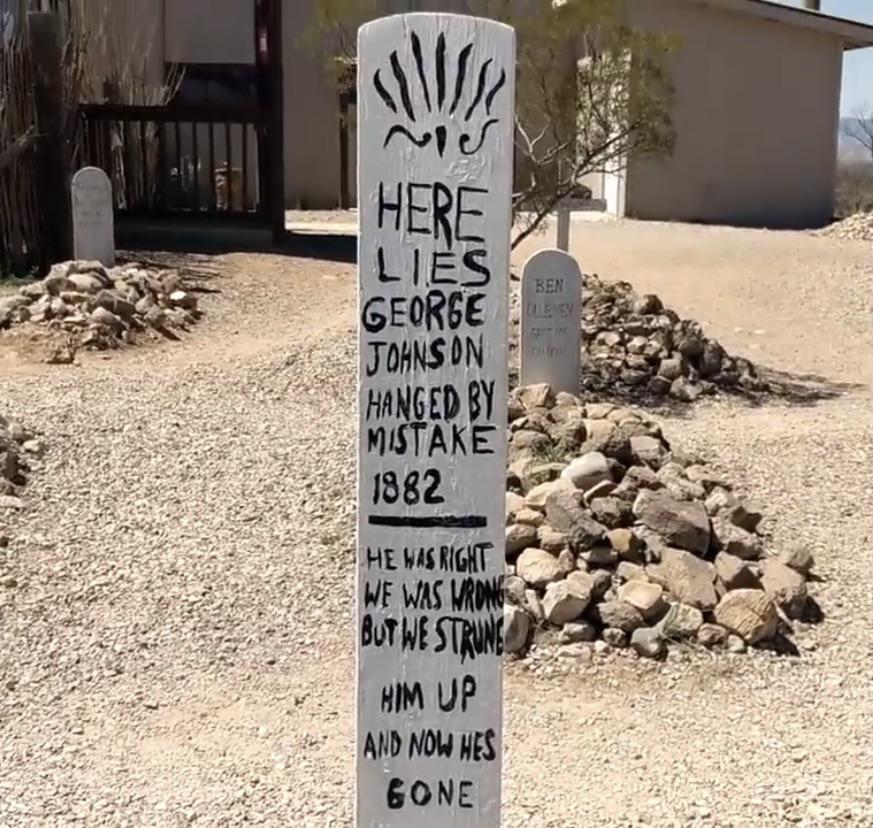 HERE
LIES
GEORGE
JOHNSON
HANGED BY
MISTAKE
1882
HE WAS RIGHT
WE WAS WRONG
BUT WE STRUNG
HIM UP
AND NOW HES
GONE
BEN